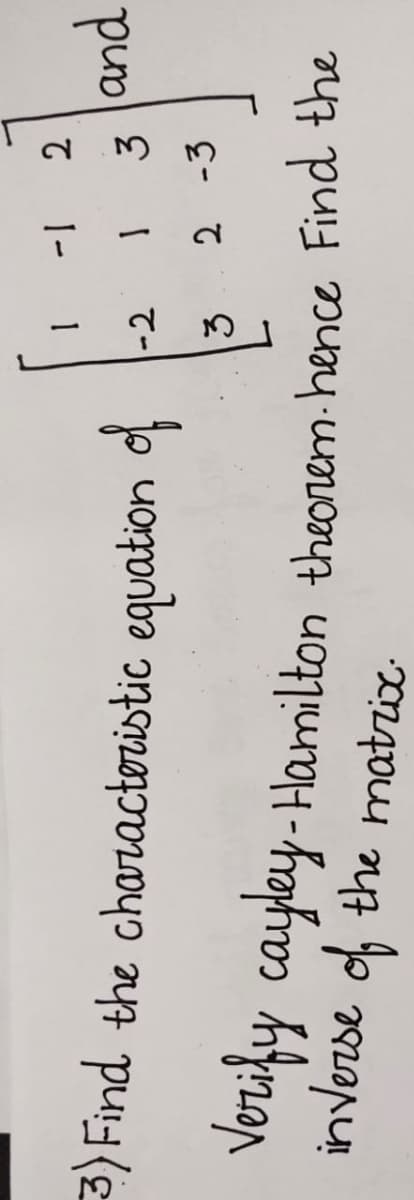 3) Find the characteristic equation of [ 1 -1 2
-2 1 3
3 2 -3 ] and
Verify cayley-Hamilton theorem. hence Find the
inverse of the matrix.